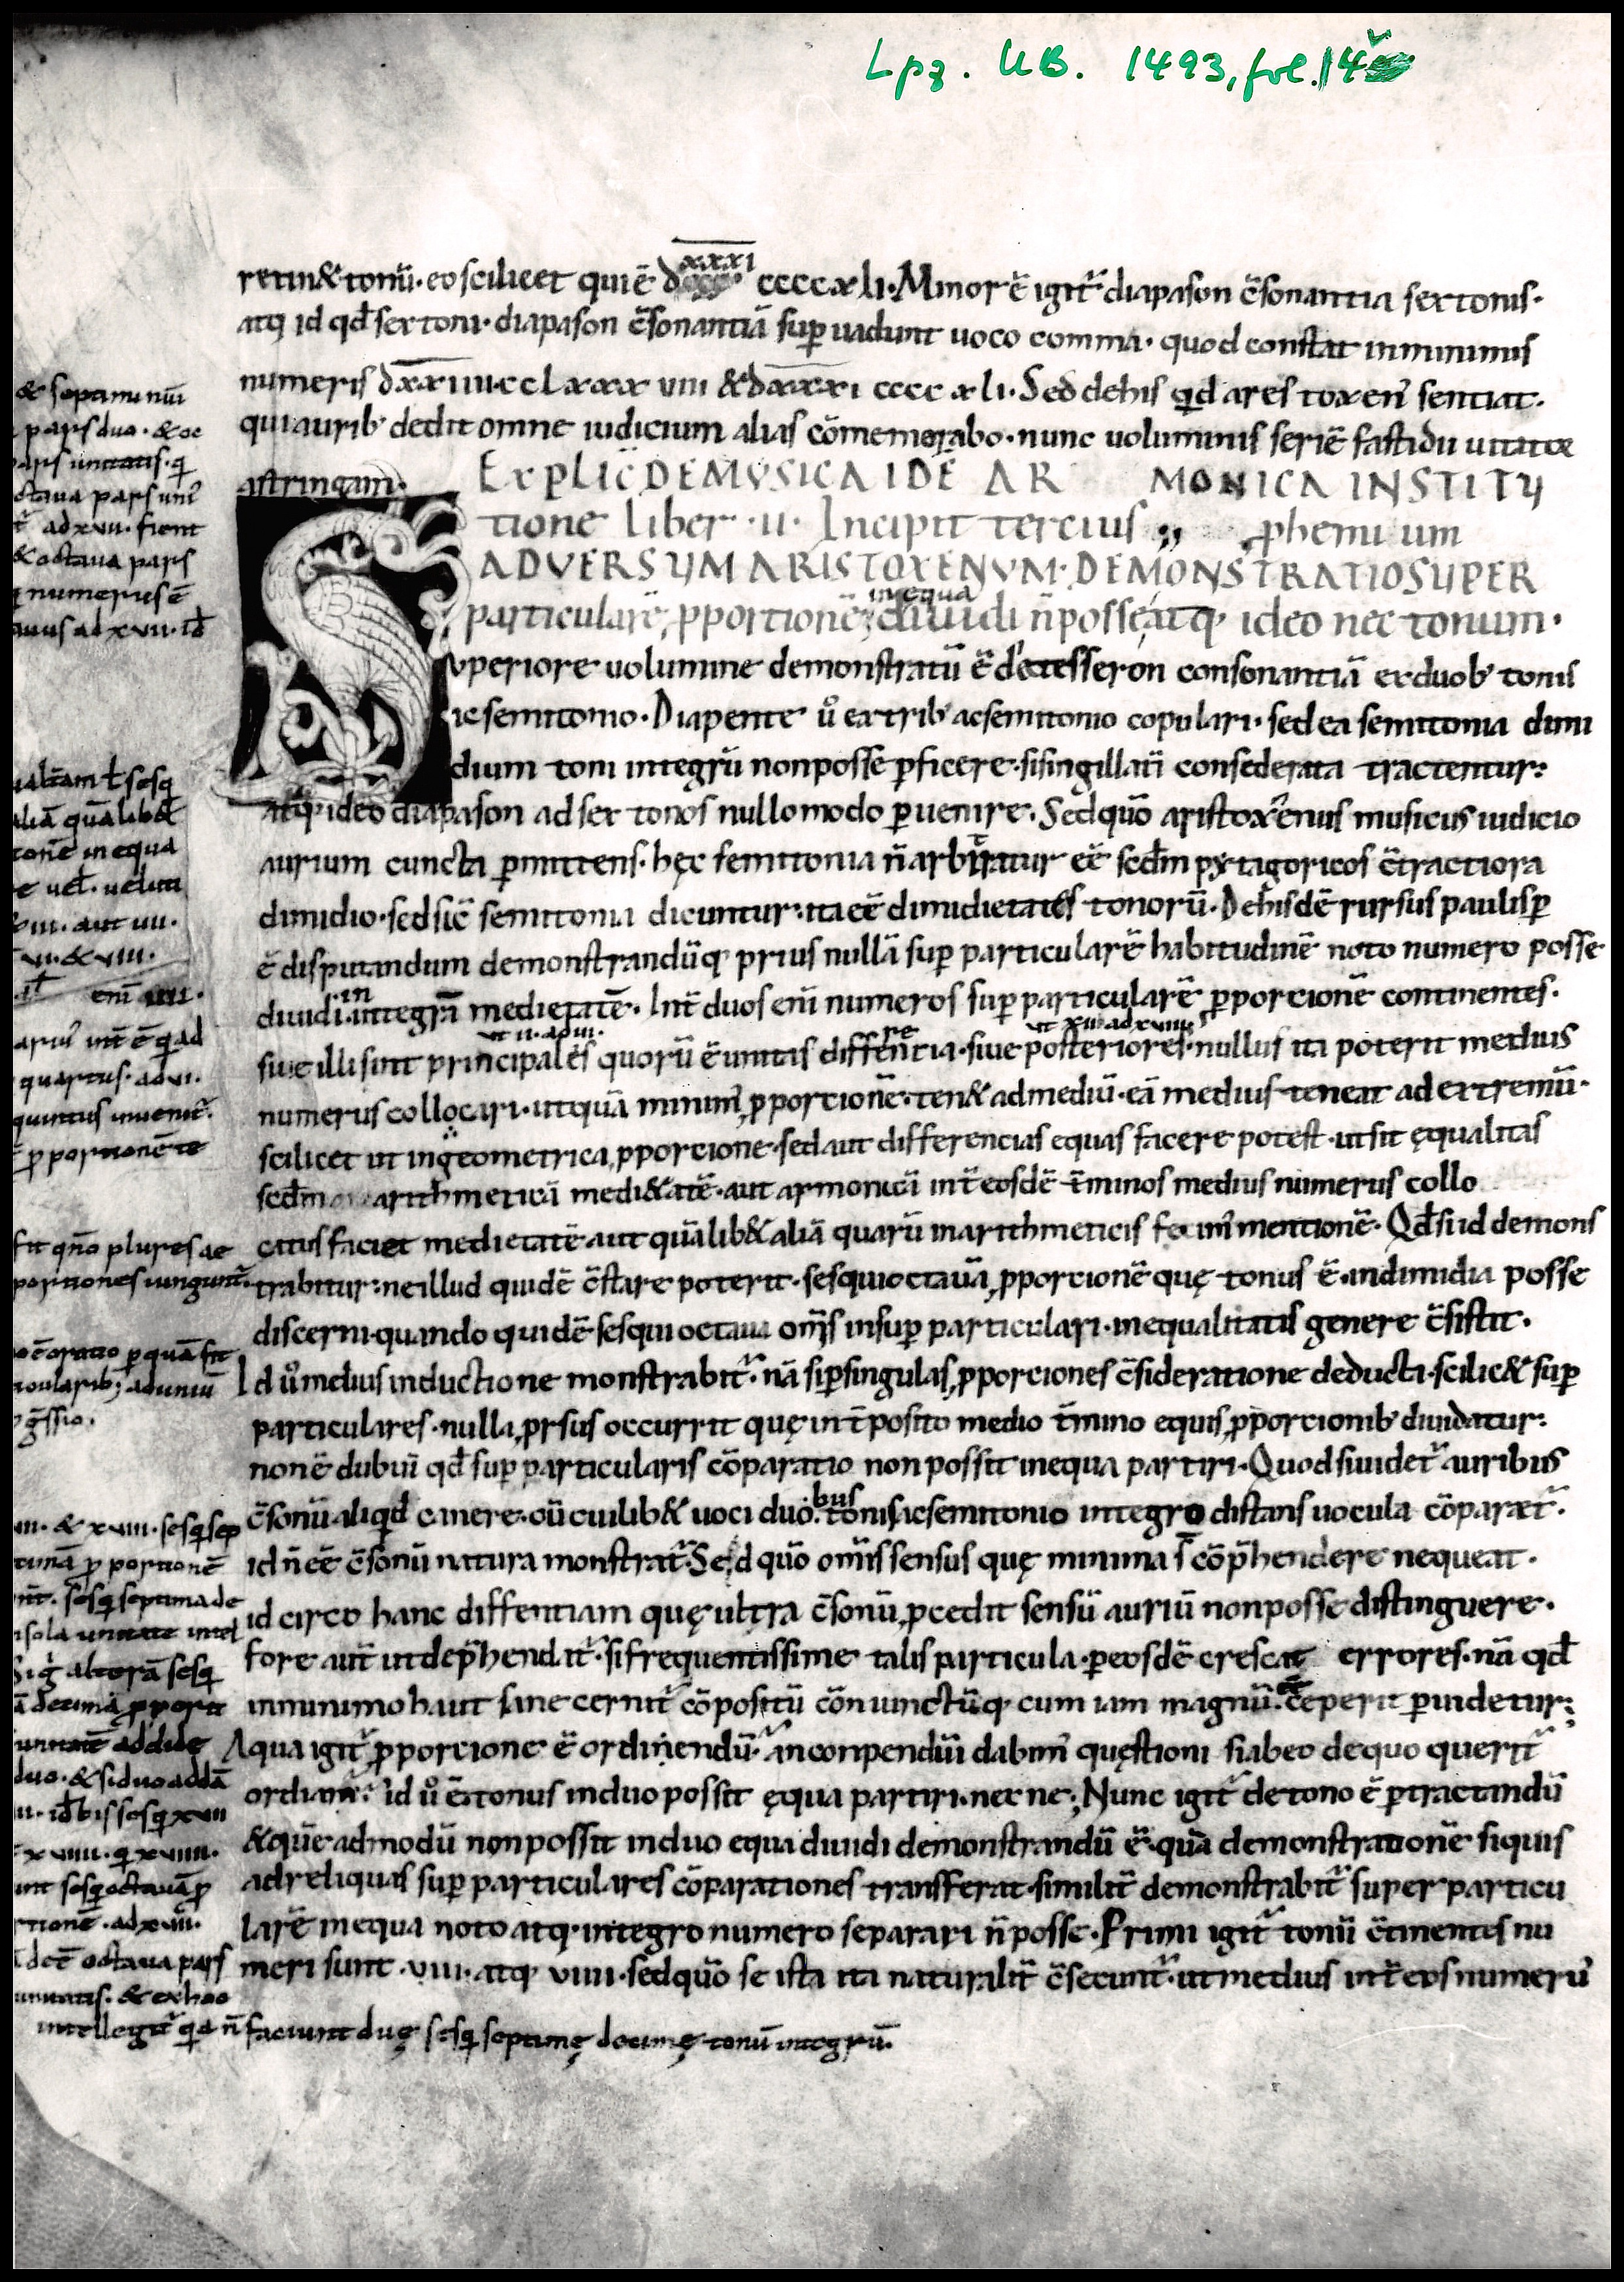 Lpz. UB. 1493, fol. 14v
retin& tonū· eo scilicet qui ē dxxxi ccccxli· Minor ē igit̄ diapason c̄sonantia sex tonis·
atq; id qd̄ sex toni· diapason c̄sonantiā sup̱ uadunt uoco comma· quod constat in minimis
numeris dxxiiii·cclxxx viii &dxxxi cccc xli· Sed de his qd ares toxen᾿ sentiat·
qui aurib᾿ dedit omne iudicium alias cōmemorabo· nunc uoluminis seriē fastidii uitator
astringam·
EXPLIC̄ DE MVSICA IDĒ AR MONICA INSTITV
tione liber ·ii· Incipit tercius ;, p̱hemi um
ADVERSVM ARISTOXENVM· DEMONSTRATIO SVPER
particularē p̱portionē in equa diuidi n̄ posse atq; ideo nec tonum·
Superiore uolumine demonstratū ē diatesseron consonantiā ex duob᾿ tonis
ac semitonio· Diapente ů ex trib᾿ ac semitonio copulari· sed ea semitonia dimi
dium toni integrū non posse p̱ficere· si singillatī consederata tractentur·
atq; ideo diapason ad sex tonos nullo modo p̱uenire· Sed quō aristoxenus musicus iudicio
aurium cuncta p̱mittens· hęc semitonia n̄ arbitratur eē sed̄m pytagoricos c̄tractiora
dimidio· sed sic̄ semitonia dicuntur· ita eē dimidietates tonorū· De hisdē rursus paulisp̱
ē disputandum demonstrandūq; prius nullā sup̱ particularē habitudinē noto numero posse
diuidi in integrā medietatē· Int̄ duos enī numeros sup̱ particularē p̱porcionē continentes·
ut ii· ad iii· ut xvi ad xviii
siue illi sint principales quorū ē unitas differencia· siue posteriores· nullus ita poterit medius
numerus collocari· ut quā minim᾿ p̱porcionē· ten& ad mediū· eā medius teneat ad extremū·
scilicet ut in geometrica p̱porcione· sed aut differencias equas facere potest· ut sit ęqualitas
sed̄m arithmeticā medi&atē· aut armonicā int̄ eosdē t̄minos medius numerus collo
catus faciet medietatē aut quālib& aliā quarū in arithmeticis fecim᾿ mentionē· Qd̄ si id demons
trabitur· ne illud quidē c̄stare poterit· sesquioctauā p̱porcionē quę tonus ē· in dimidia posse
discerni· quando quidē sesquioctaua om̄is in sup̱ particulari· inequalitatis genere c̄sistit·
Id ů melius inductione monstrabit̄· nā si p̱ singulas p̱porciones c̄sideratione deducta· scilic& sup̱
particulares· nulla p̱rsus occurrit quę int̄posito medio t̄mino equis p̱porcionib᾿ diuidatur·
non ē dubiū qd̄ sup̱ particularis cōparatio non possit in equa partiri· Quod si uidet̄ auribus
c̄sonū aliqd canere· cū cuilib& uoci duobus tonis ac semitonio integro distans uocula cōparaet̄·
id n̄ eē c̄sonū natura monstrat̄· Sed quō om̄is sensus quę minima s̄ cōp̄hendere nequeat·
id circo hanc diffentiam quę ultra c̄sonū p̱cedit sensū auriū non posse distinguere·
fore aut̄ ut dep̄hendit̄· si frequentissime talis particula· p̱ eosdē crescat errores· nā qd̄
in minimo haut sane cernit̄ cōpositū coniunctūq; cum iam magnū eē ceperit p̱uidetur·
A qua igit̄ p̱porcione ē ordiendū· an conpendiū dabim᾿ quęstioni si ab eo de quo querit̄
ordiam̄· id ů ē· tonus in duo possit ęqua partiri· nec ne; Nunc igit̄ de tono ē p̱tractandū
& quē ad modū non possit in duo equa diuidi demonstrandū ē· quā demonstrationē siquis
ad reliquas sup̱ particulares cōparationes transferat· similit̄ demonstrabit̄ super particu
larē in equa noto atq; integro numero separari n̄ posse· Primi igit̄ tonū c̄tinentes nu
meri sunt ·viii· atq; viiii· sed quō se ista ita naturalit̄ c̄secunt̄· ut medius int̄ eos numerus
& septimi nūi
pars duo· & oc
pars unitatis· q
octaua pars uni᾿
ad xvii· fient
& octaua pars
numerus ē
ad xvii· id̄
sesq
aliā quālib&
tonē in equa
uel· ueluti
iii· aut iiii·
vii· & viii·
enī iiii·
int̄ ē qd ad
quartus· ad vi·
quintus inuenit̄·
p̱portionē te
fit qn̄o plures ac
portiones iungunt̄·
oratio p̱ quā fit
ticularib; ad uniū
gressio·
& xviii· sesq sep
timā p̱portionē
sesq septima de
sola unitate intel
alterā sesq
decimā p̱port
unitatē addide
duo· & si duo addā
id̄ bis sesq xvii
xviii· q xviiii·
sesq octauā p̱
tionē· ad xviii·
octaua pars
unitatis· & ex hoc
intellegit̄ qd n̄ faciunt duę sesq septimę decimę tonū integrū·